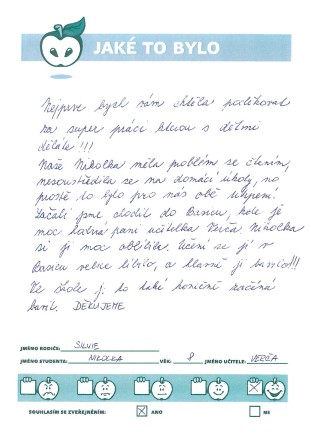 JAKÉ TO BYLO
Nejprve bych vám chtěla poděkovat
za super práci kterou s dětmi
děláte!!!
Naše Nikolka měla problém se čtením,
nesoustředila se na domácí úkoly, no
prostě to bylo pro nás obě utrpení.
Začali jsme chodit do Basicu, kde je
moc hodná paní učitelka Verča. Nikolka
si ji moc oblíbila učení se jí v
Basicu velice líbilo, a hlavně ji bavilo!!!
Ve škole ji to také konečně začíná
bavit. DĚKUJEME
JMÉNO RODIČE: SILVIE
JMÉNO STUDENTA: NIKOLKA VĚK: 8 JMÉNO UČITELE: VERČA
SOUHLASÍM SE ZVEŘEJNĚNÍM: ANO NE